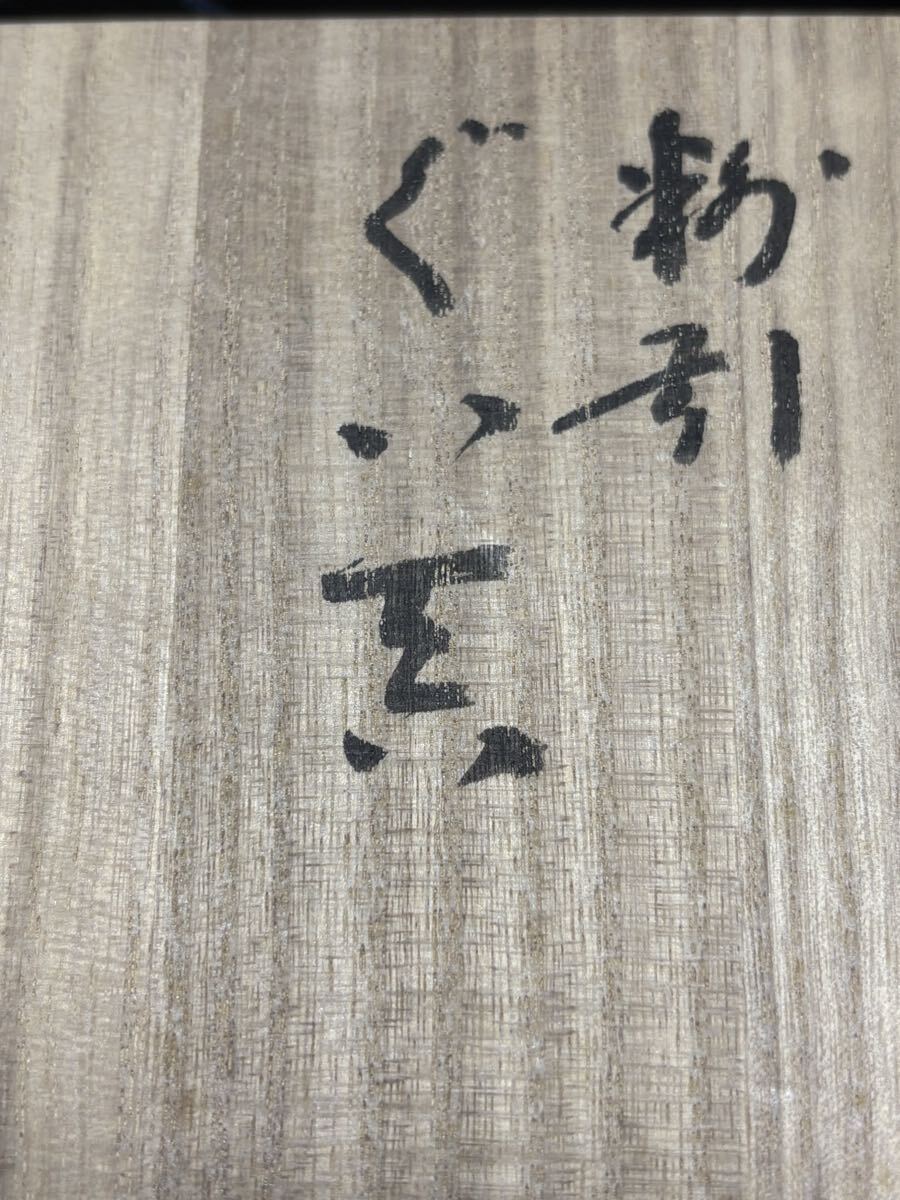 粉引
ぐい呑